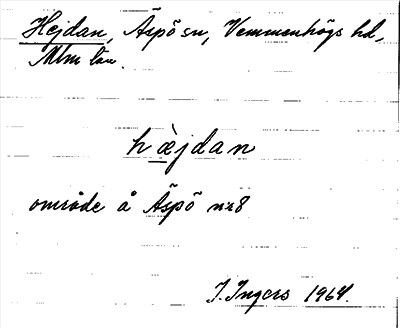 Hejdan, Äspö sn, Vemmenhögs hd,
Mlm län.
hæ̀jdan
område å Äspö nr 8
J. Ingers 1964.